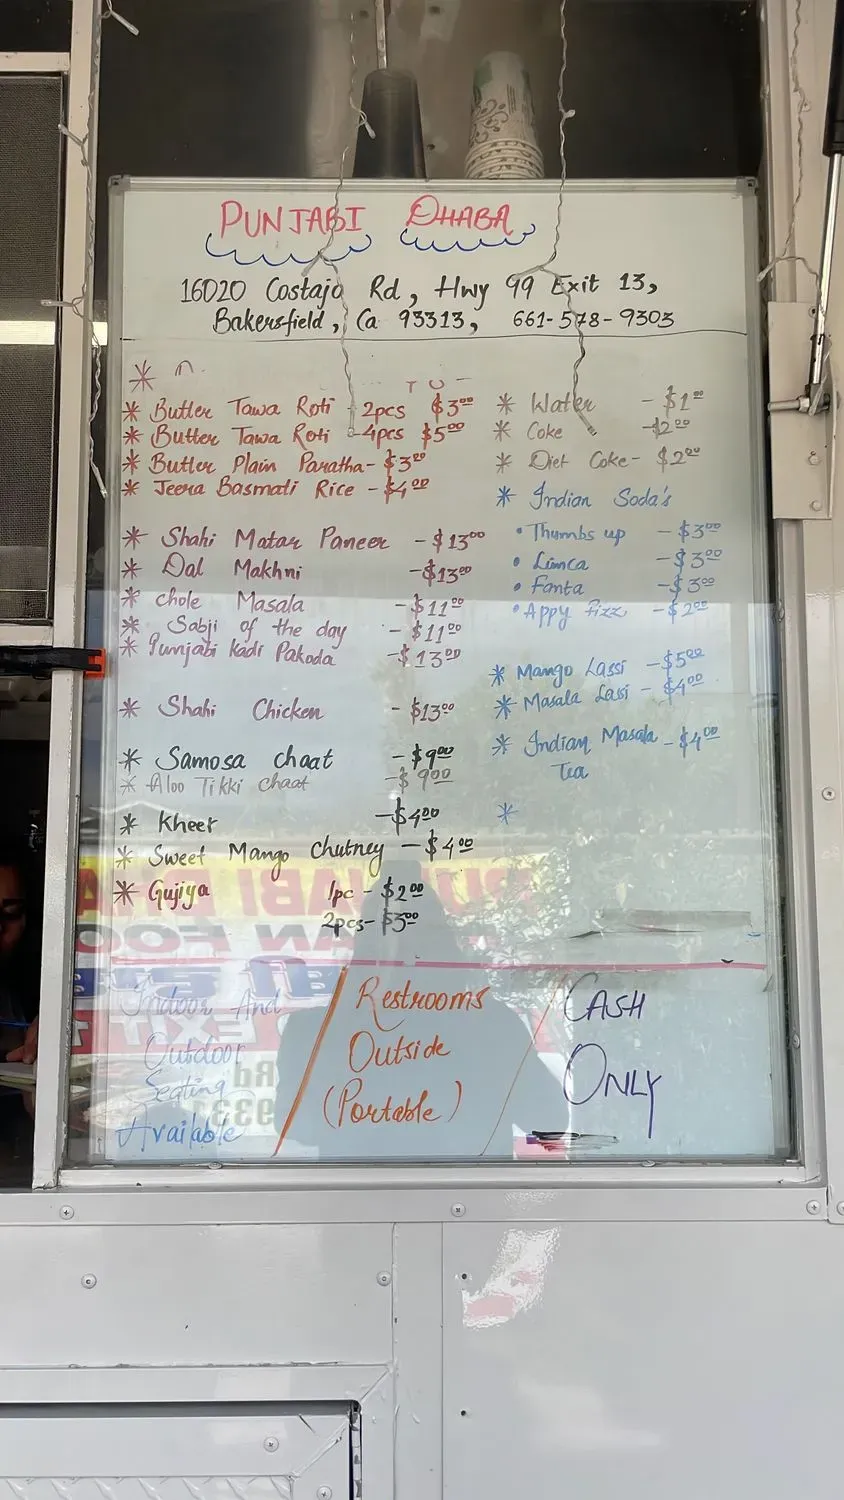 PUNJABI DHABA
16020 Costajo Rd, Hwy 99 Exit 13,
Bakersfield, Ca 93313, 661-578-9303
* Butter Tawa Roti - 2pcs $3.00
* Butter Tawa Roti - 4pcs $5.00
* Butter Plain Paratha - $3.00
* Jeera Basmati Rice - $4.00
* Shahi Matar Paneer - $13.00
* Dal Makhni - $13.00
* chole Masala - $11.00
* Sabji of the day - $11.00
* Punjabi Kadi Pakoda - $13.00
* Shahi Chicken - $13.00
* Samosa chaat - $9.00
* Aloo Tikki chaat - $9.00
* Kheer - $4.00
* Sweet Mango Chutney - $4.00
* Gujiya 1pc - $2.00
2pcs - $3.00
* Water - $1.00
* Coke - $2.00
* Diet Coke - $2.00
* Indian Soda's
• Thumbs up - $3.00
• Limca - $3.00
• Fanta - $3.00
• Appy Fizz - $2.00
* Mango Lassi - $5.00
* Masala Lassi - $4.00
* Indian Masala - $4.00
Tea
*
Indoor And
Outdoor
Seating
Available
Restrooms
Outside
(Portable)
CASH
ONLY